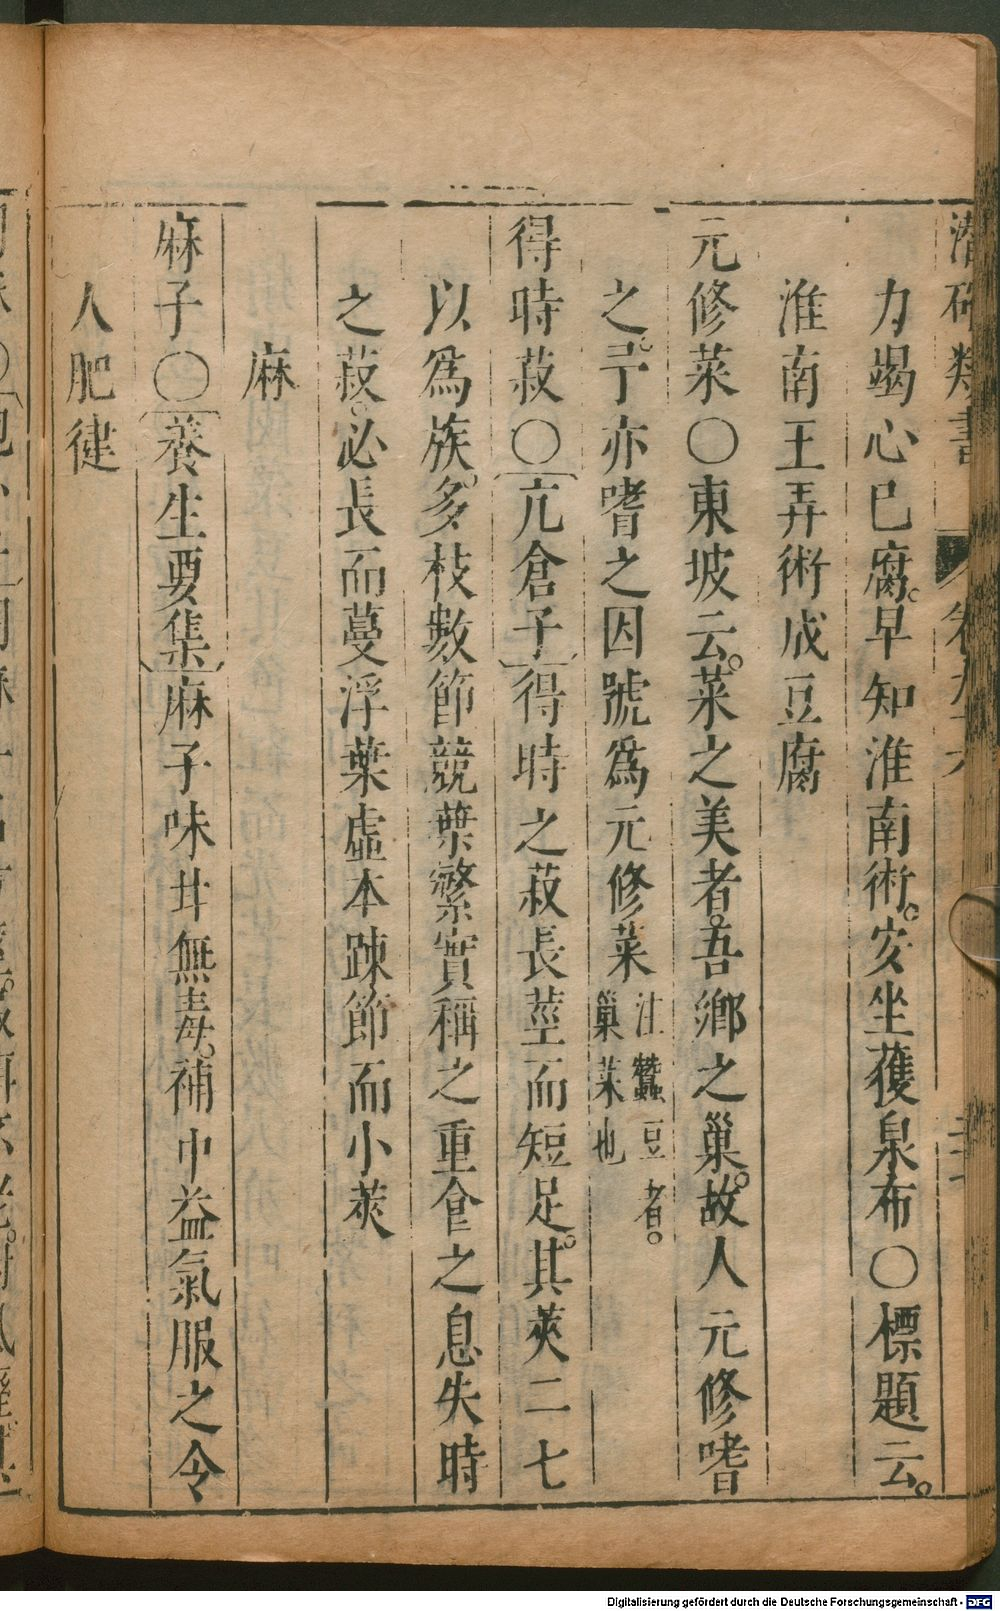 潜確類書 卷九十六
力竭心已腐。早知淮南術。安坐獲泉布〇標題云。
淮南王弄術成豆腐
元修菜〇東坡云。菜之美者。吾鄉之巢。故人元修嗜
之。予亦嗜之因號為元修菜 注蠶豆者。巢菜也
得時菽〇亢倉子得時之菽長莖而短足。其莢二七
以為族。多枝數節競葉繁實稱之重食之息失時
之菽。必長而蔓浮葉虛本踈節而小莢
麻
麻子〇養生要集麻子味甘無毒。補中益氣服之令
人肥健
Digitalisierung gefördert durch die Deutsche Forschungsgemeinschaft - DFG